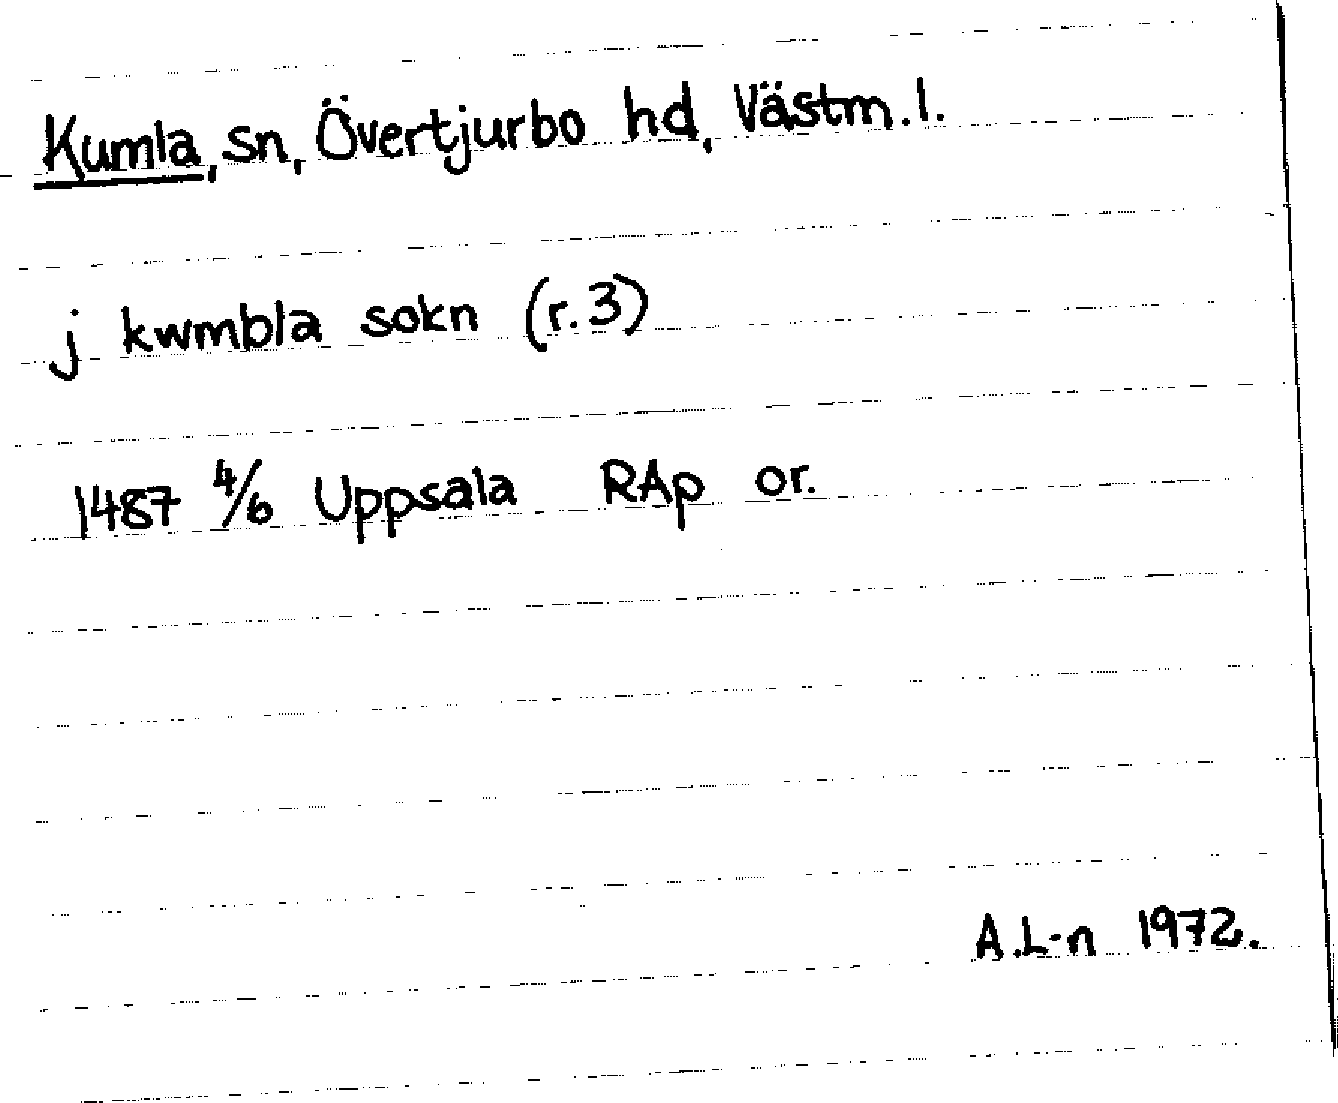 Kumla, sn, Övertjurbo hd, Västm.l.
j kwmbla sokn (r.3)
1487 4/6 Uppsala RAp or.
A.L-n 1972.